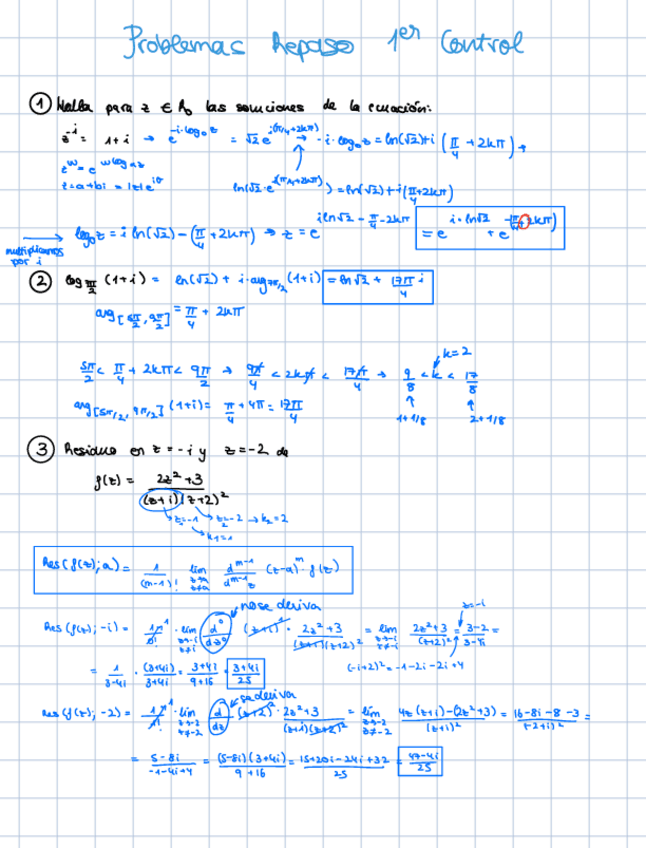 Problemas Repaso 1er Control
① Halla para z ∈ A₀ las soluciones de la ecuación:
z^{-i} = 1+i → e^{-i·log₀z} = √2 e^{i(π/4+2kπ)} → -i·log₀z = ln(√2)+i(π/4+2kπ) →
z^w = e^{w log z}
z=a+bi = |z|e^{iθ}
ln(√2·e^{i(π/4+2kπ)}) = ln(√2)+i(π/4+2kπ)
multiplicamos por i
log₀z = i ln(√2) - (π/4+2kπ) → z = e^{i ln√2 - π/4 - 2kπ} = e^{i·ln√2} + e^{-(π/4+2kπ)}
② log_{5π/2} (1+i) = ln(√2) + i·arg_{5π/2}(1+i) = ln√2 + 17π/4 i
arg[5π/2, 9π/2] = π/4 + 2kπ
5π/2 < π/4 + 2kπ < 9π/2 → 9π/4 < 2kπ < 17π/4 → 9/8 < k < 17/8
k=2
1+1/8 2+1/8
arg[5π/2, 9π/2] (1+i) = π/4 + 4π = 17π/4
③ Residuo en z=-i y z=-2 de
f(z) = (2z²+3)/((z+i)(z+2)²)
z₁=-i z₂=-2 → k₂=2
k₁=1
Res(f(z);a) = 1/(m-1)! lim_{z→a, z≠a} d^{m-1}/d^{m-1}z (z-a)^m·f(z)
no se deriva
z=-i
Res(f(z);-i) = 1/0!·lim_{z→-i, z≠-i} d⁰/dz⁰ (z+i)·(2z²+3)/((z+i)(z+2)²) = lim_{z→-i, z≠-i} (2z²+3)/(z+2)² = (3-2)/(3-4i) =
(-i+2)² = -1-2i-2i+4
= 1/(3-4i)·(3+4i)/(3+4i) = (3+4i)/(9+16) = (3+4i)/25
se deriva
Res(f(z);-2) = 1/1!·lim_{z→-2, z≠-2} d/dz (z+2)²·(2z²+3)/((z+i)(z+2)²) = lim_{z→-2, z≠-2} (4z(z+i)-(2z²+3))/(z+i)² = (16-8i-8-3)/(-2+i)² =
= (5-8i)/(-1-4i+4) = (5-8i)(3+4i)/(9+16) = (15+20i-24i+32)/25 = (47-4i)/25